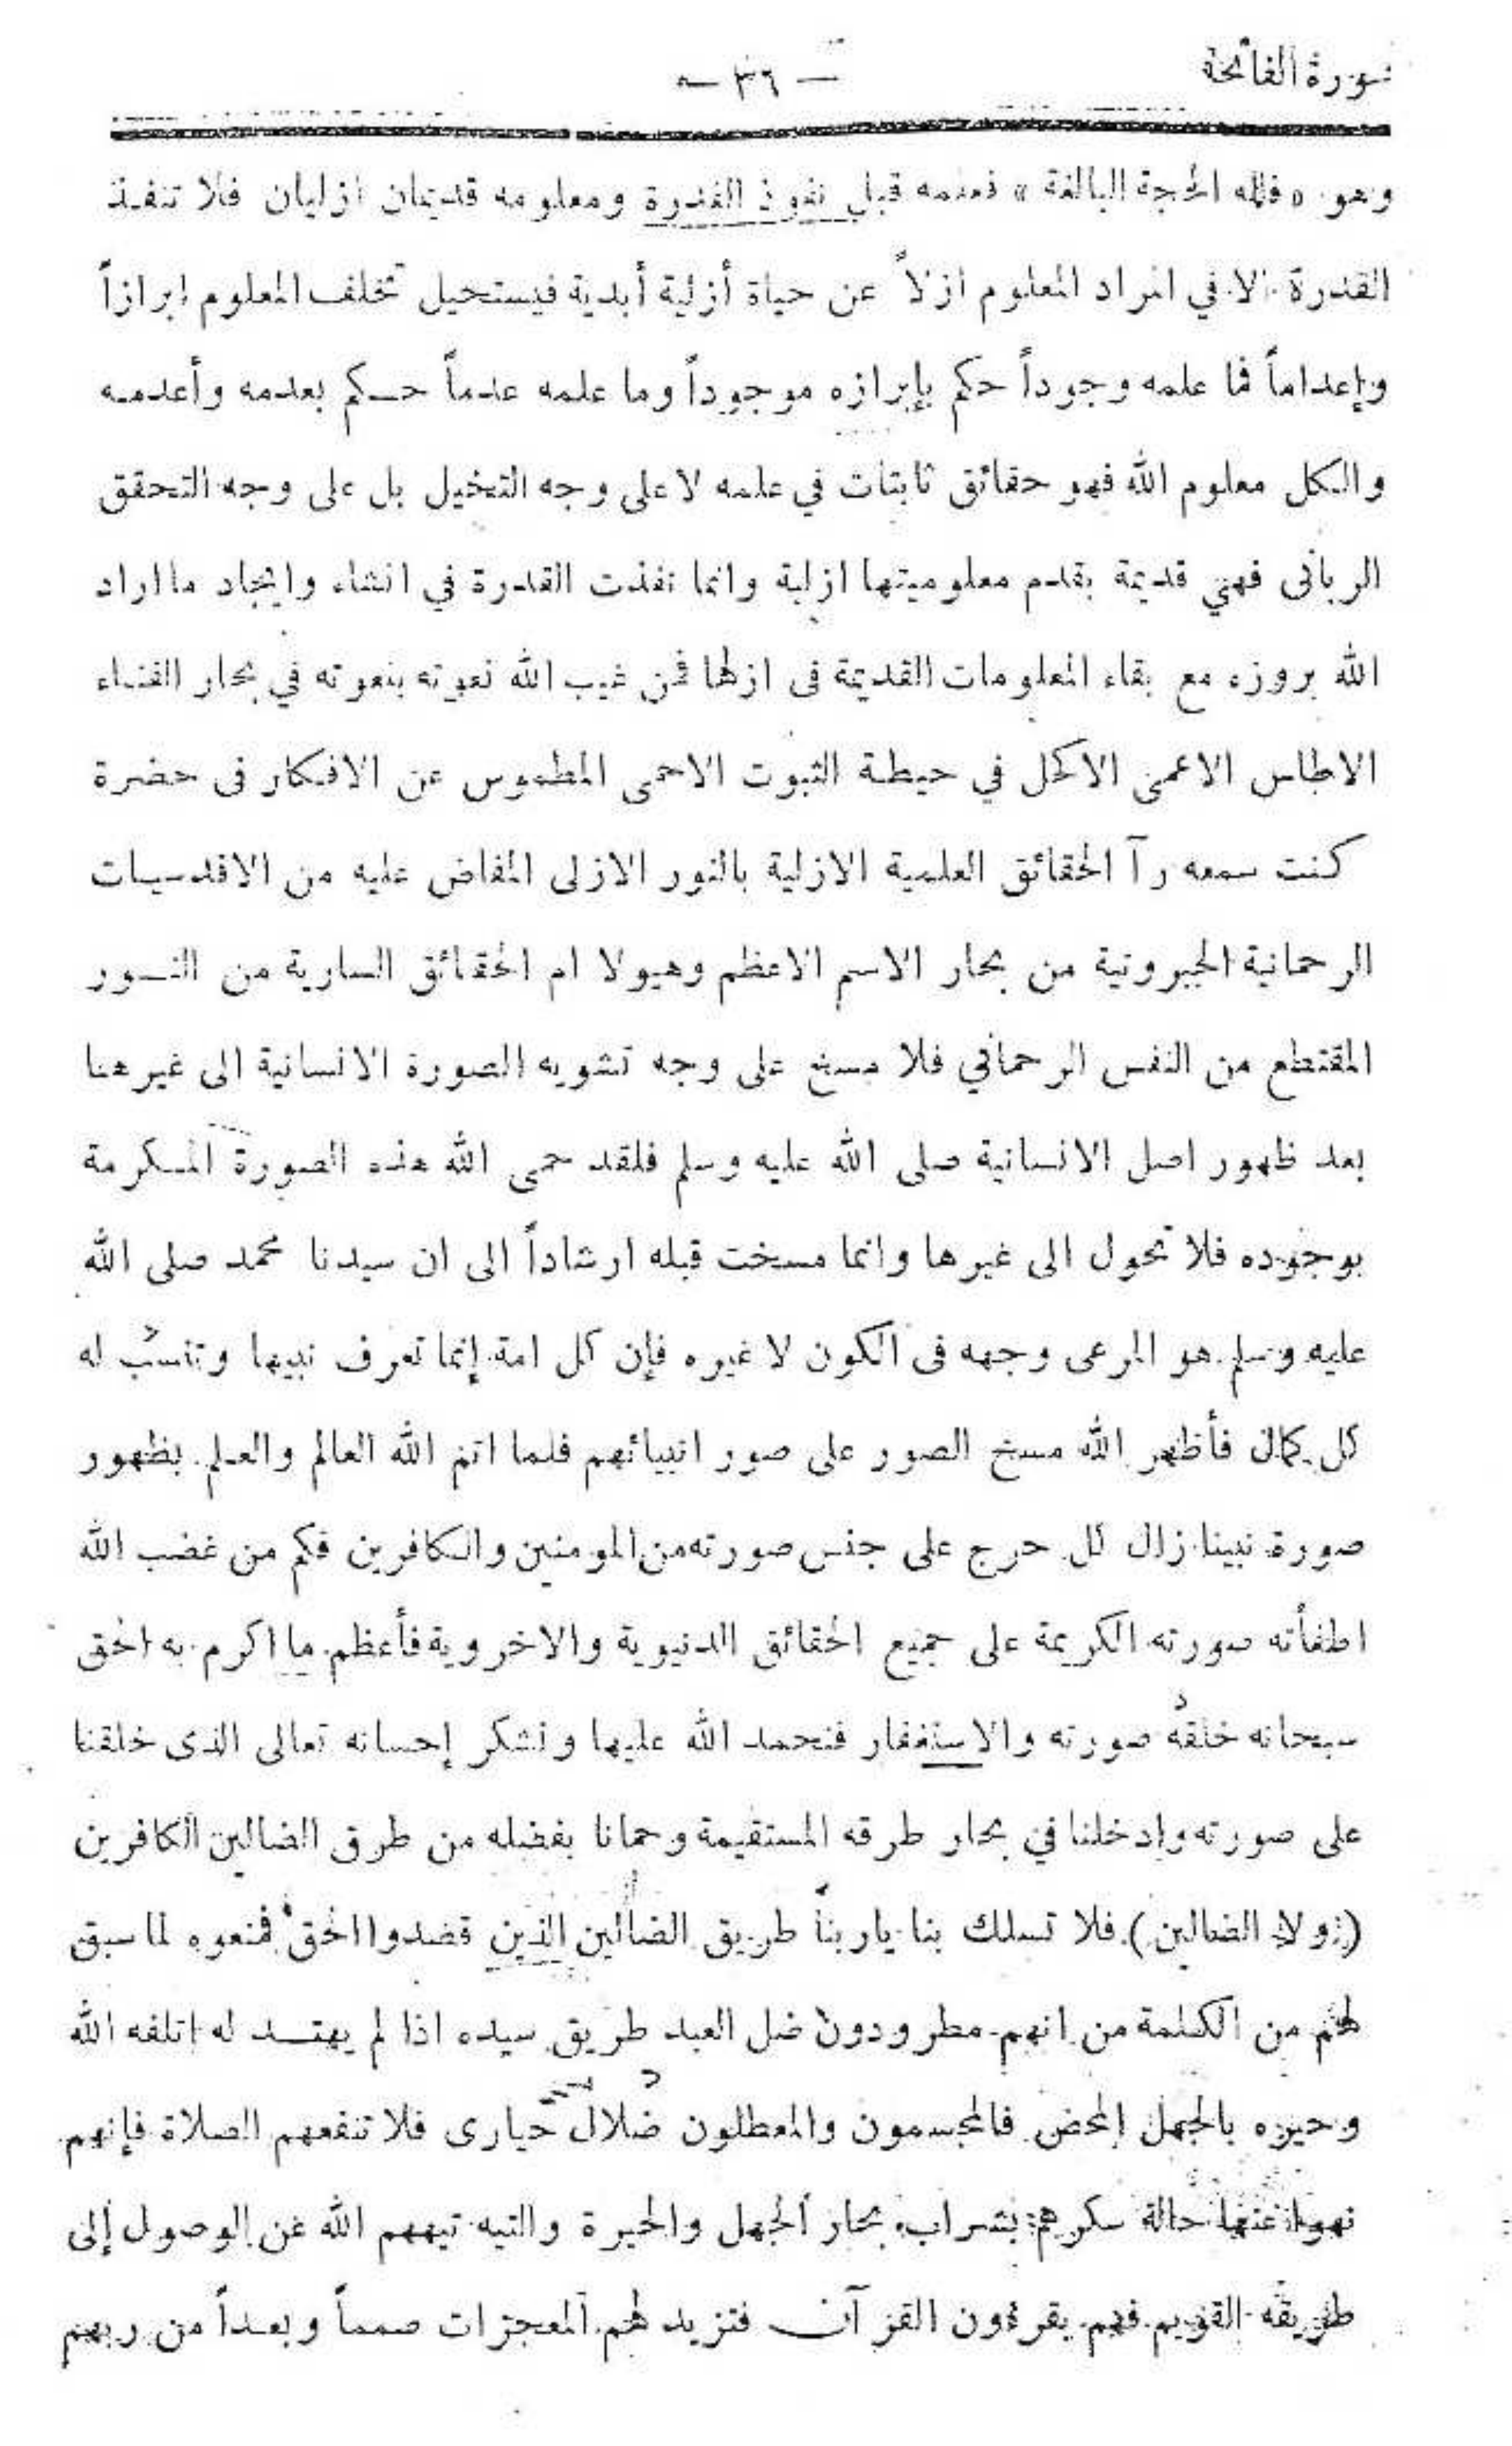 سورة الفاتحة
— ٣٦ —
وهو «فلله الحجة البالغة» فعلمه قبل نفوذ القدرة ومعلومه قديمان ازليان فلا تنفذ
القدرة الا في المراد المعلوم ازلاً عن حياة أزلية أبدية فيستحيل تخلف المعلوم إبرازاً
وإعداماً فما علمه وجوداً حكم بإبرازه موجوداً وما علمه عدماً حكم بعدمه وأعدمه
والكل معلوم الله فهو حقائق ثابتات في علمه لا على وجه التخيل بل على وجه التحقق
الربانى فهي قديمة بقدم معلوميتها ازلية وانما نفذت القدرة في انشاء وايجاد ما اراد
الله بروزه مع بقاء المعلومات القديمة فى ازلها فمن غيب الله نعوته بنعوته في بحار الفناء
الاطلس الاعمى الاكمل في حيطة الثبوت الاحمى المطموس عن الافكار فى حضرة
كنت سمعه رآ الحقائق العلمية الازلية بالنور الازلى المفاض عليه من الاقدسيات
الرحمانية الجبروتية من بحار الاسم الاعظم وهيولا ام الحقائق السارية من النور
المقتطع من النفس الرحماني فلا مسخ على وجه تشويه الصورة الانسانية الى غيرها
بعد ظهور اصل الانسانية صلى الله عليه وسلم فلقد حمى الله هذه الصورة المكرمة
بوجوده فلا تحول الى غيرها وانما مسخت قبله ارشاداً الى ان سيدنا محمد صلى الله
عليه وسلم هو المرعى وجهه فى الكون لا غيره فإن كل امة إنما تعرف نبيها وتنسب له
كل كمال فأظهر الله مسخ الصور على صور انبيائهم فلما اتم الله العالم والعلم بظهور
صورة نبينا زال كل حرج على جنس صورته من المومنين والكافرين فكم من غضب الله
اطفأته صورته الكريمة على جميع الحقائق الدنيوية والاخروية فأعظم ما اكرم به الحق
سبحانه خلقهُ صورته والاستغفار فنحمد الله عليها ونشكر إحسانه تعالى الذى خلقنا
على صورته وإدخلنا في بحار طرقه المستقيمة وحمانا بفضله من طرق الضالين الكافرين
(ولا الضالين) فلا تسلك بنا ياربنا طريق الضالين الذين قصدوا الحق فمنعوه لما سبق
لهم من الكلمة من انهم مطرودون ضل العبد طريق سيده اذا لم يهتد له اتلفه الله
وحيره بالجهل المحض فالمجسمون والمعطلون ضلال حيارى فلا تنفعهم الصلاة فإنهم
نهوا عنها حالة سكرهم بشراب بحار الجهل والحيرة والتيه تيههم الله عن الوصول إلى
طريقه القويم فهم يقرءون القرآن فتزيد لهم المعجزات صمماً وبعداً من ربهم